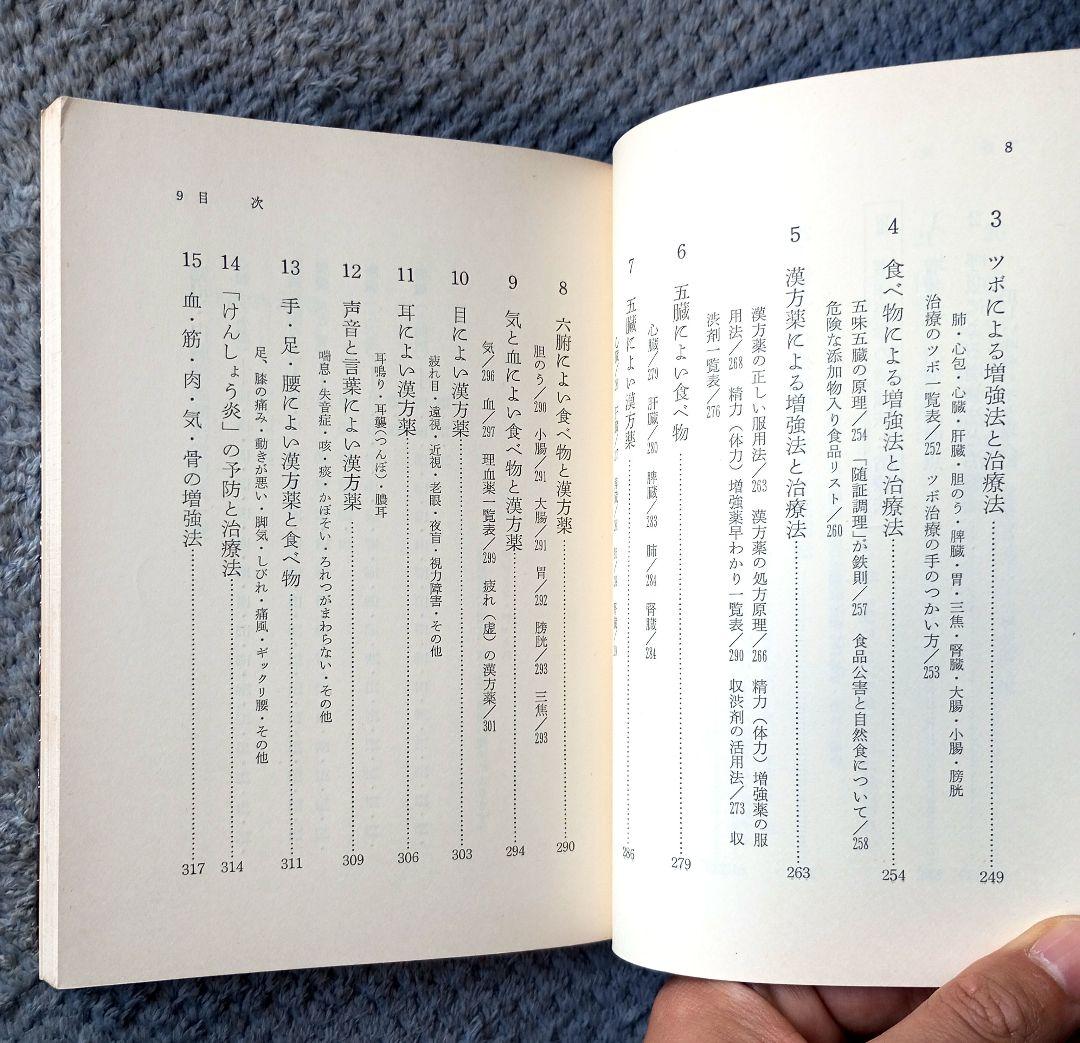 8
3 ツボによる増強法と治療法……249
肺・心包・心臓・肝臓・胆のう・脾臓・胃・三焦・腎臓・大腸・小腸・膀胱
治療のツボ一覧表/252 ツボ治療の手のつかい方/253
4 食べ物による増強法と治療法……254
五味五臓の原理/254 「随証調理」が鉄則/257 食品公害と自然食について/258
危険な添加物入り食品リスト/260
5 漢方薬による増強法と治療法……263
漢方薬の正しい服用法/263 漢方薬の処方原理/266 精力(体力)増強薬の服
用法/268 精力(体力)増強薬早わかり一覧表/290 収渋剤の活用法/273 収
渋剤一覧表/276
6 五臓によい食べ物……279
心臓/279 肝臓/283 脾臓/283 肺/284 腎臓/284
7 五臓によい漢方薬……286
9 目 次
8 六腑によい食べ物と漢方薬……290
胆のう/290 小腸/291 大腸/291 胃/292 膀胱/293 三焦/293
9 気と血によい食べ物と漢方薬……294
気/296 血/297 理血薬一覧表/299 疲れ(虚)の漢方薬/301
10 目によい漢方薬……303
疲れ目・遠視・近視・老眼・夜盲・視力障害・その他
11 耳によい漢方薬……306
耳鳴り・耳聾(つんぼ)・膿耳
12 声音と言葉によい漢方薬……309
喘息・失音症・咳・痰・かぼそい・ろれつがまわらない・その他
13 手・足・腰によい漢方薬と食べ物……311
足、膝の痛み・動きが悪い・脚気・しびれ・痛風・ギックリ腰・その他
14 「けんしょう炎」の予防と治療法……314
15 血・筋・肉・気・骨の増強法……317